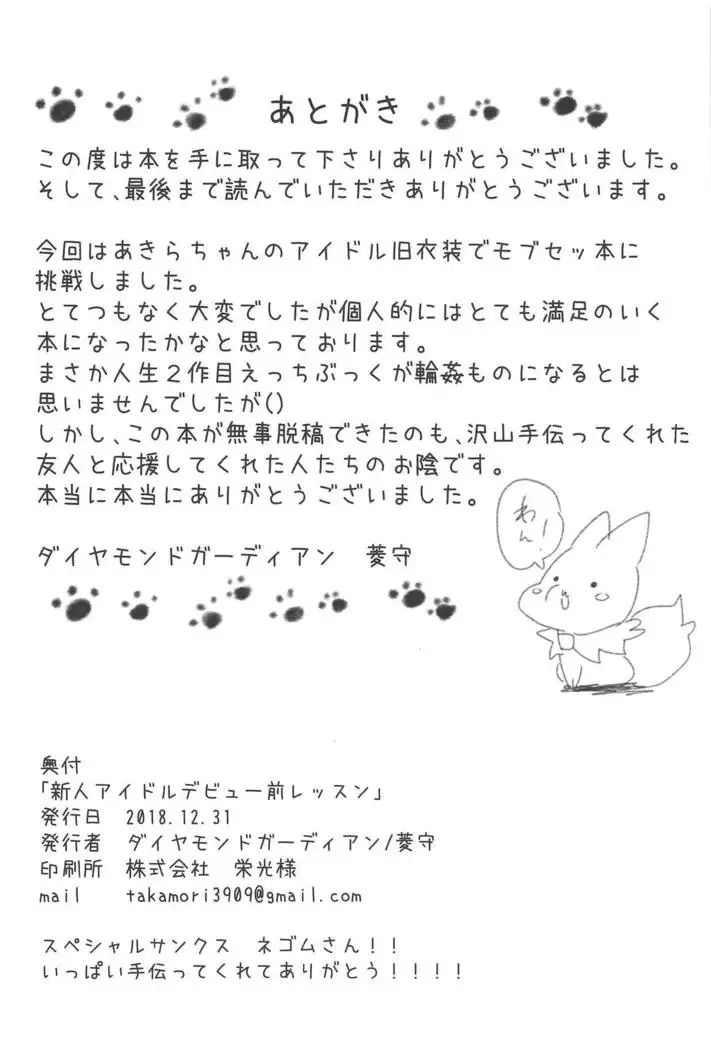 あとがき
この度は本を手に取って下さりありがとうございました。
そして、最後まで読んでいただきありがとうございます。
今回はあきらちゃんのアイドル旧衣装でモブセッ本に
挑戦しました。
とてつもなく大変でしたが個人的にはとても満足のいく
本になったかなと思っております。
まさか人生２作目えっちぶっくが輪姦ものになるとは
思いませんでしたが()
しかし、この本が無事脱稿できたのも、沢山手伝ってくれた
友人と応援してくれた人たちのお陰です。
本当に本当にありがとうございました。
わん!
ダイヤモンドガーディアン　菱守
奥付
「新人アイドルデビュー前レッスン」
発行日　2018.12.31
発行者　ダイヤモンドガーディアン/菱守
印刷所　株式会社　栄光様
mail　takamori3909@gmail.com
スペシャルサンクス　ネゴムさん！！
いっぱい手伝ってくれてありがとう！！！！